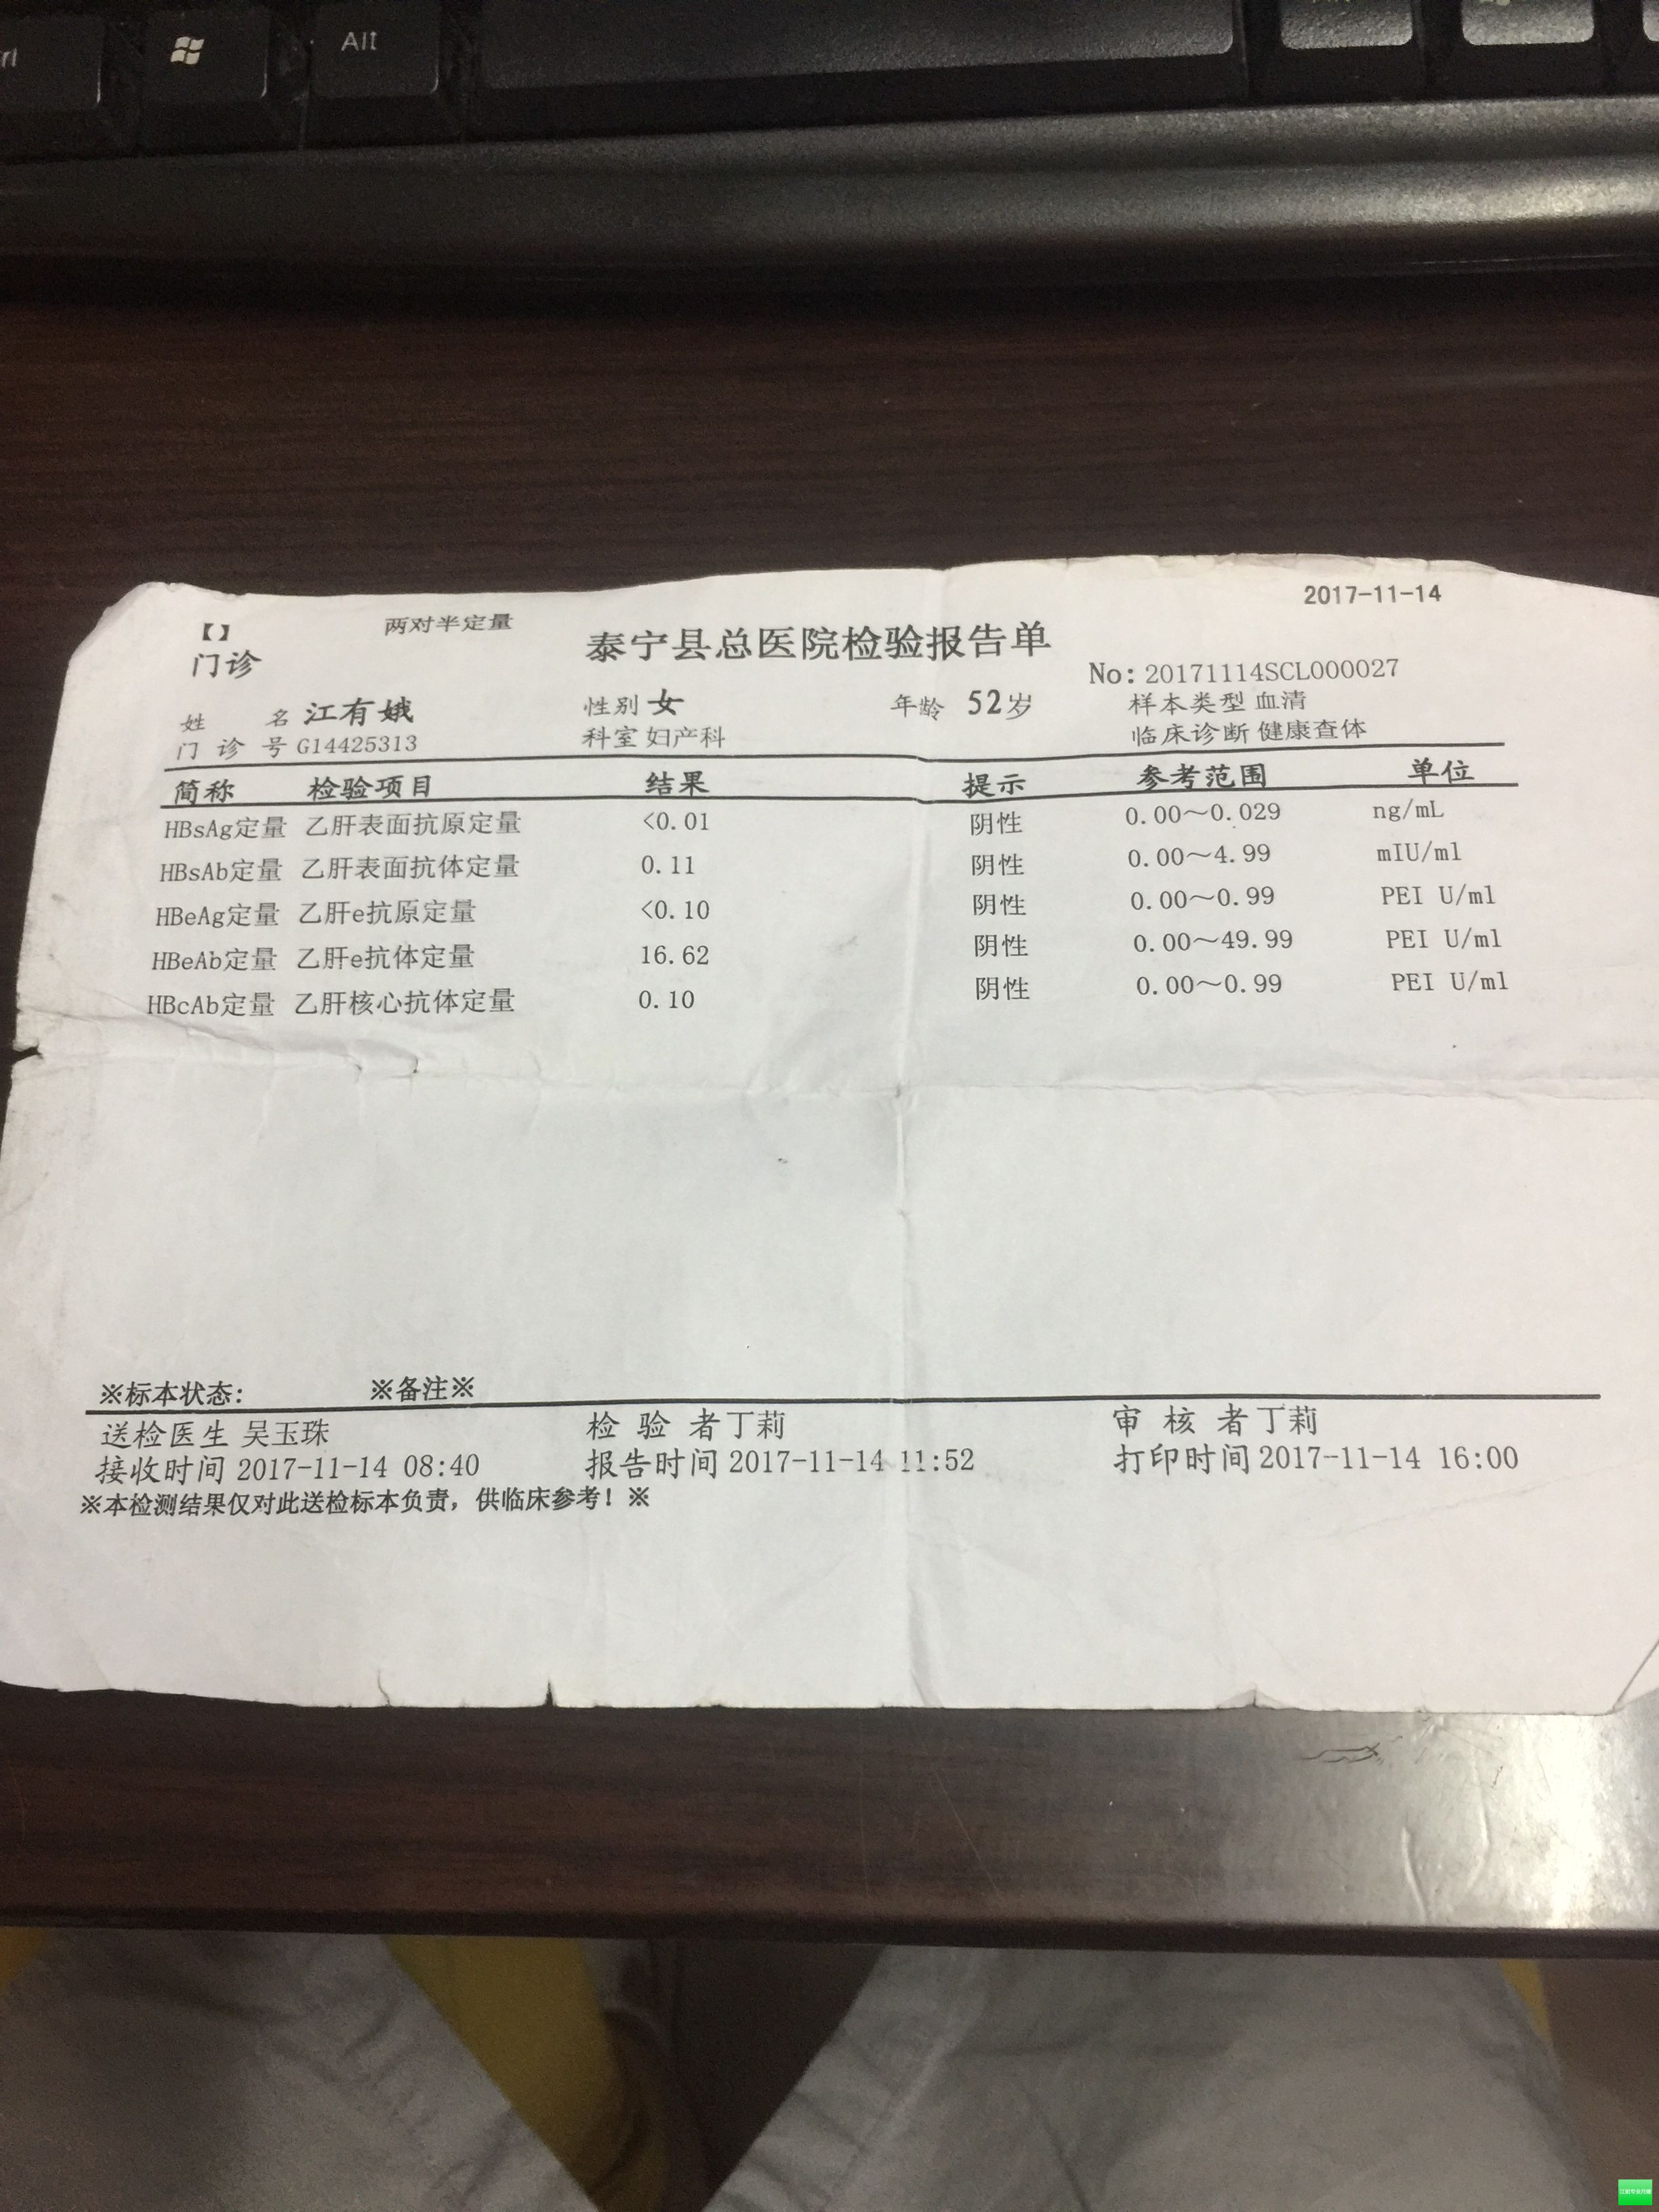 Alt
2017-11-14
【】 两对半定量
泰宁县总医院检验报告单
门诊
No: 20171114SCL000027
姓 名 江有娥 性别 女 年龄 52岁 样本类型 血清
门 诊 号 G14425313 科室 妇产科 临床诊断 健康查体
简称 检验项目 结果 提示 参考范围 单位
HBsAg定量 乙肝表面抗原定量 <0.01 阴性 0.00～0.029 ng/mL
HBsAb定量 乙肝表面抗体定量 0.11 阴性 0.00～4.99 mIU/ml
HBeAg定量 乙肝e抗原定量 <0.10 阴性 0.00～0.99 PEI U/ml
HBeAb定量 乙肝e抗体定量 16.62 阴性 0.00～49.99 PEI U/ml
HBcAb定量 乙肝核心抗体定量 0.10 阴性 0.00～0.99 PEI U/ml
※标本状态: ※备注※
送检医生 吴玉珠 检 验 者 丁莉 审 核 者 丁莉
接收时间 2017-11-14 08:40 报告时间 2017-11-14 11:52 打印时间 2017-11-14 16:00
※本检测结果仅对此送检标本负责，供临床参考！※